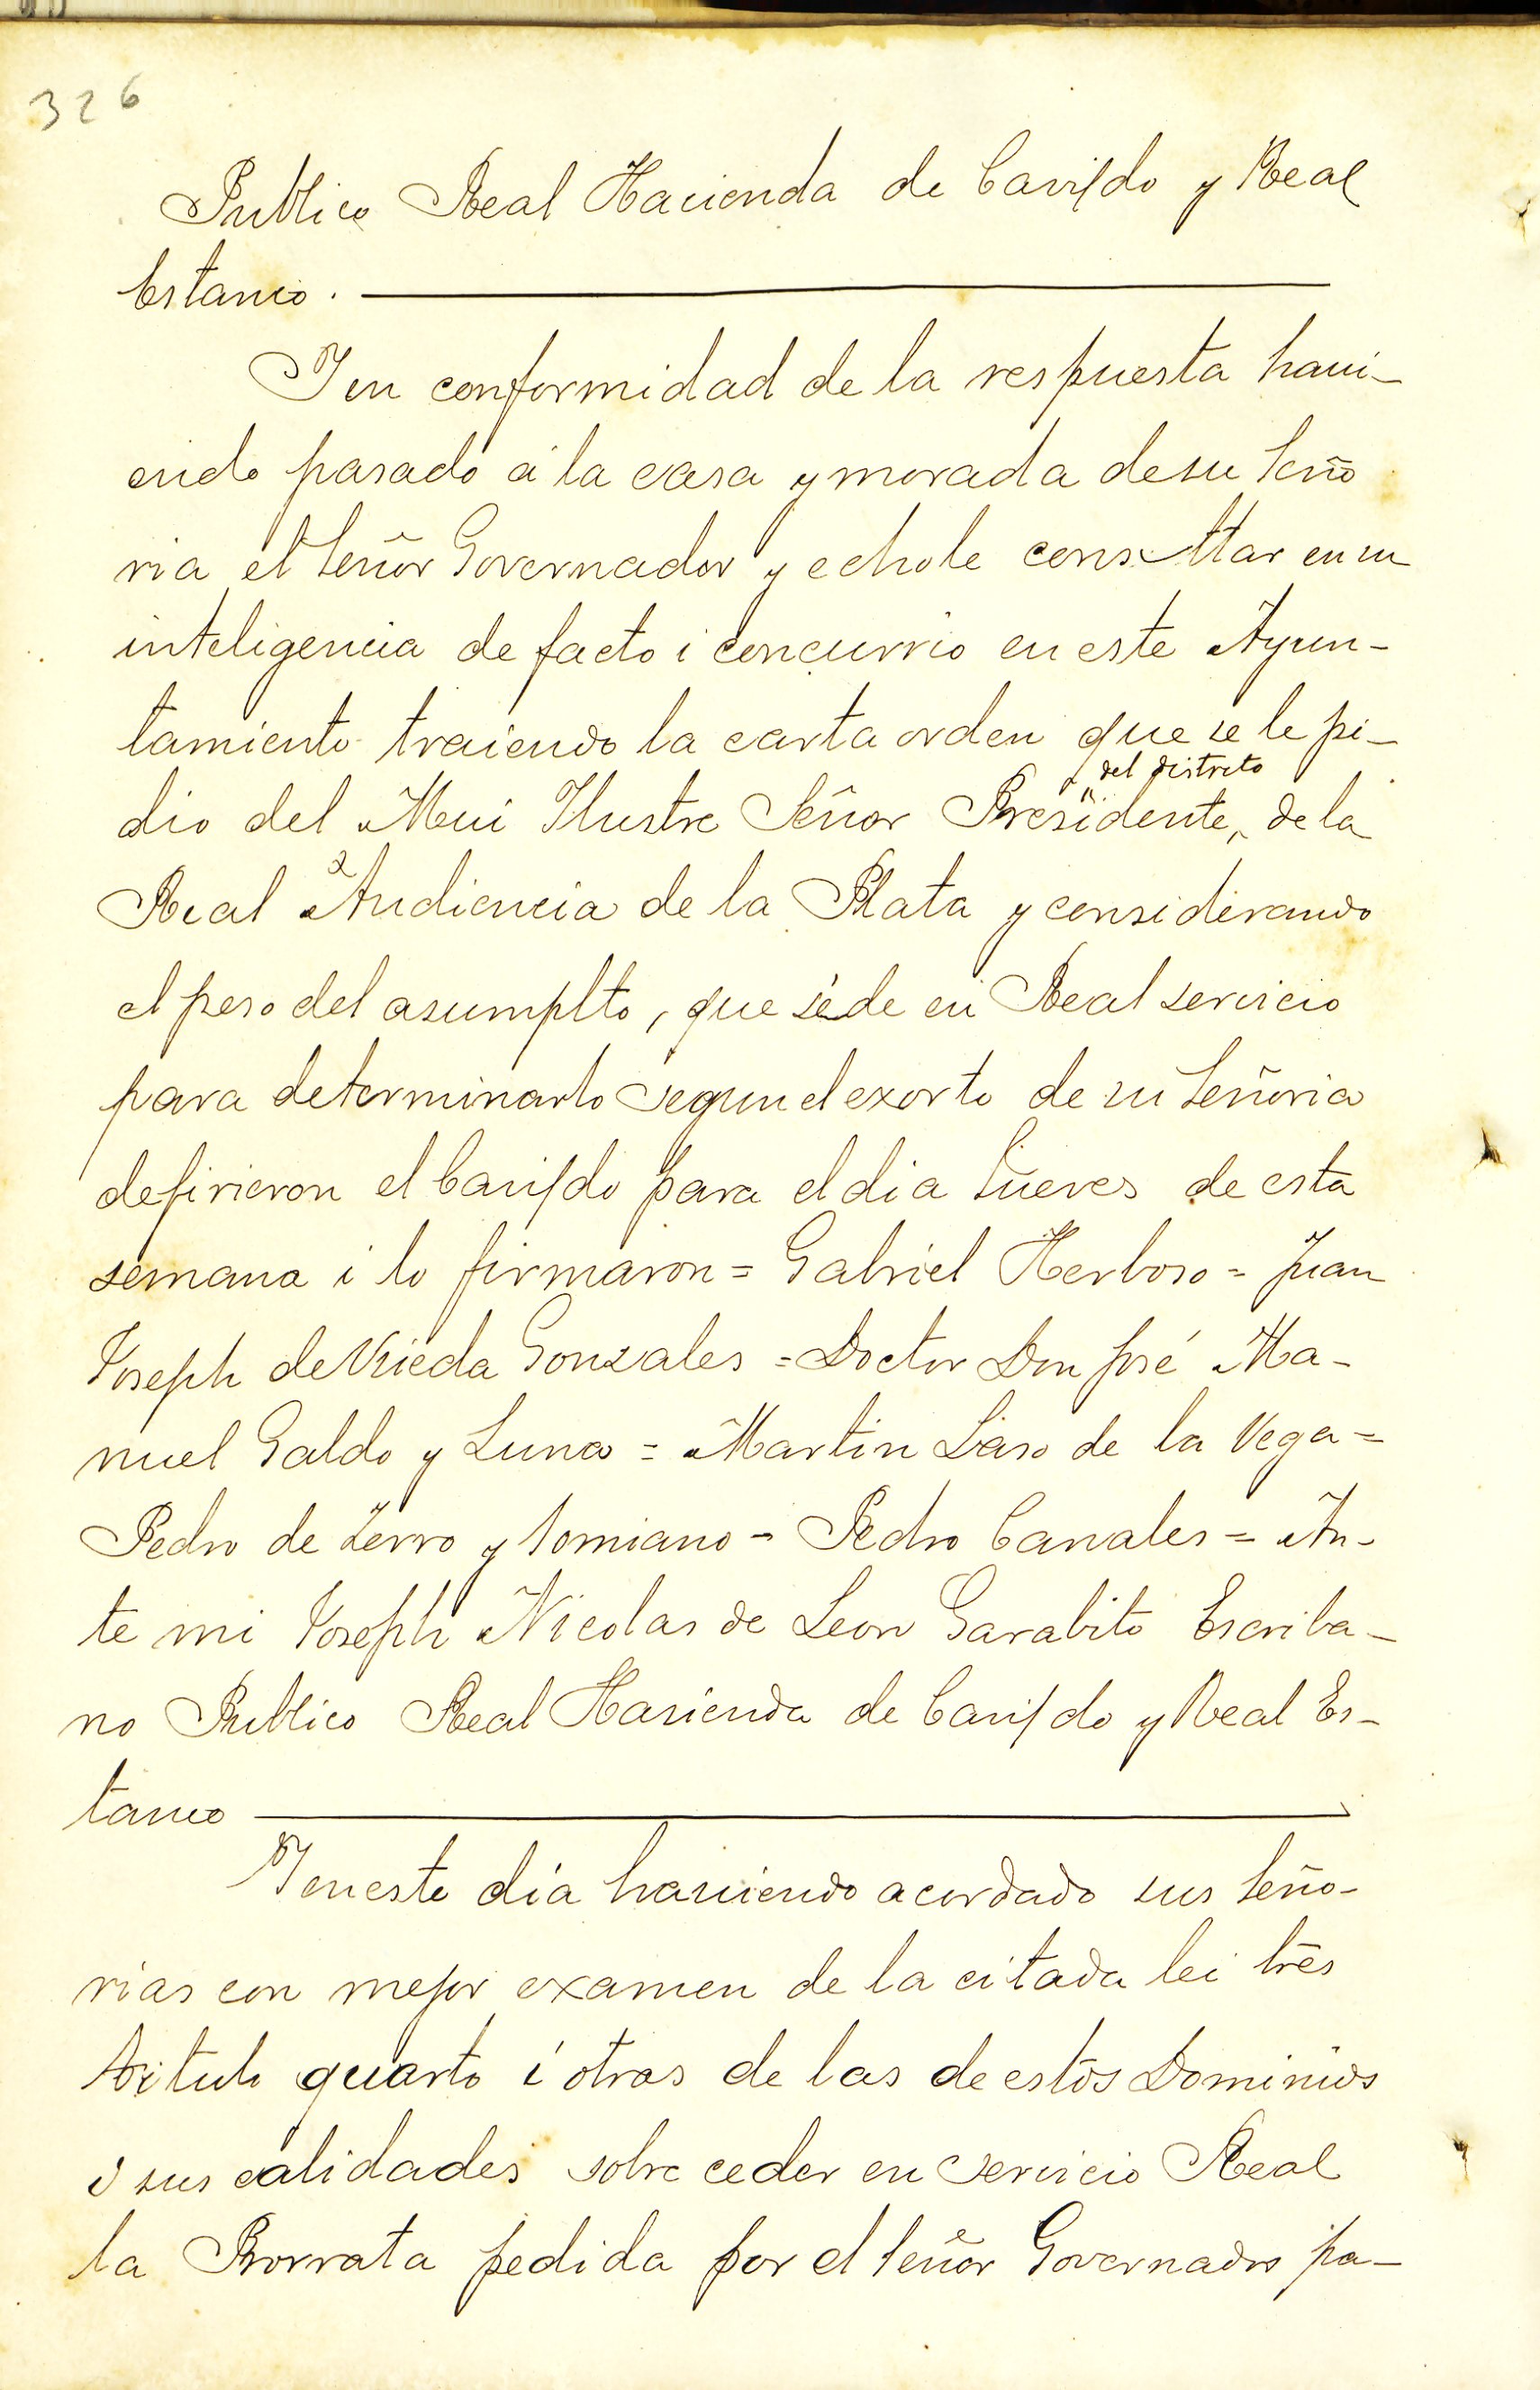 326
Publico Real Hacienda de Cavildo y Real
Estanco.
Y en conformidad de la respuesta havi-
endo pasado á la casa y morada de su Seño
ria el Señor Governador y echole consttar en su
inteligencia de facto i concurrio en este Ayun-
tamiento traiendo la carta orden que se le pi-
del distrito
dio del Mui Ilustre Señor Presidente, de la
Real Audiencia de la Plata y considerando
el peso del asumplto, que sede en Real servicio
para determinarlo segun el exorto de su Señoria
defirieron el Cavildo para el dia Jueves de esta
semana i lo firmaron = Gabriel Herboso = Juan
Joseph de Urieda Gonzales = Doctor Don José Ma-
nuel Galdo y Luna = Martin Laso de la Vega =
Pedro de Zerro y Somiano = Pedro Canales = An-
te mi Joseph Nicolas de Leon Garabito Escriba-
no Publico Real Hacienda de Cavildo y Real Es-
tanco
Y en este dia haviendo acordado sus Seño-
rias con mejor examen de la citada lei tres
titulo quarto i otras de las de estos Dominios
i sus calidades sobre ceder en servicio Real
la Prorrata pedida por el Señor Governador pa-